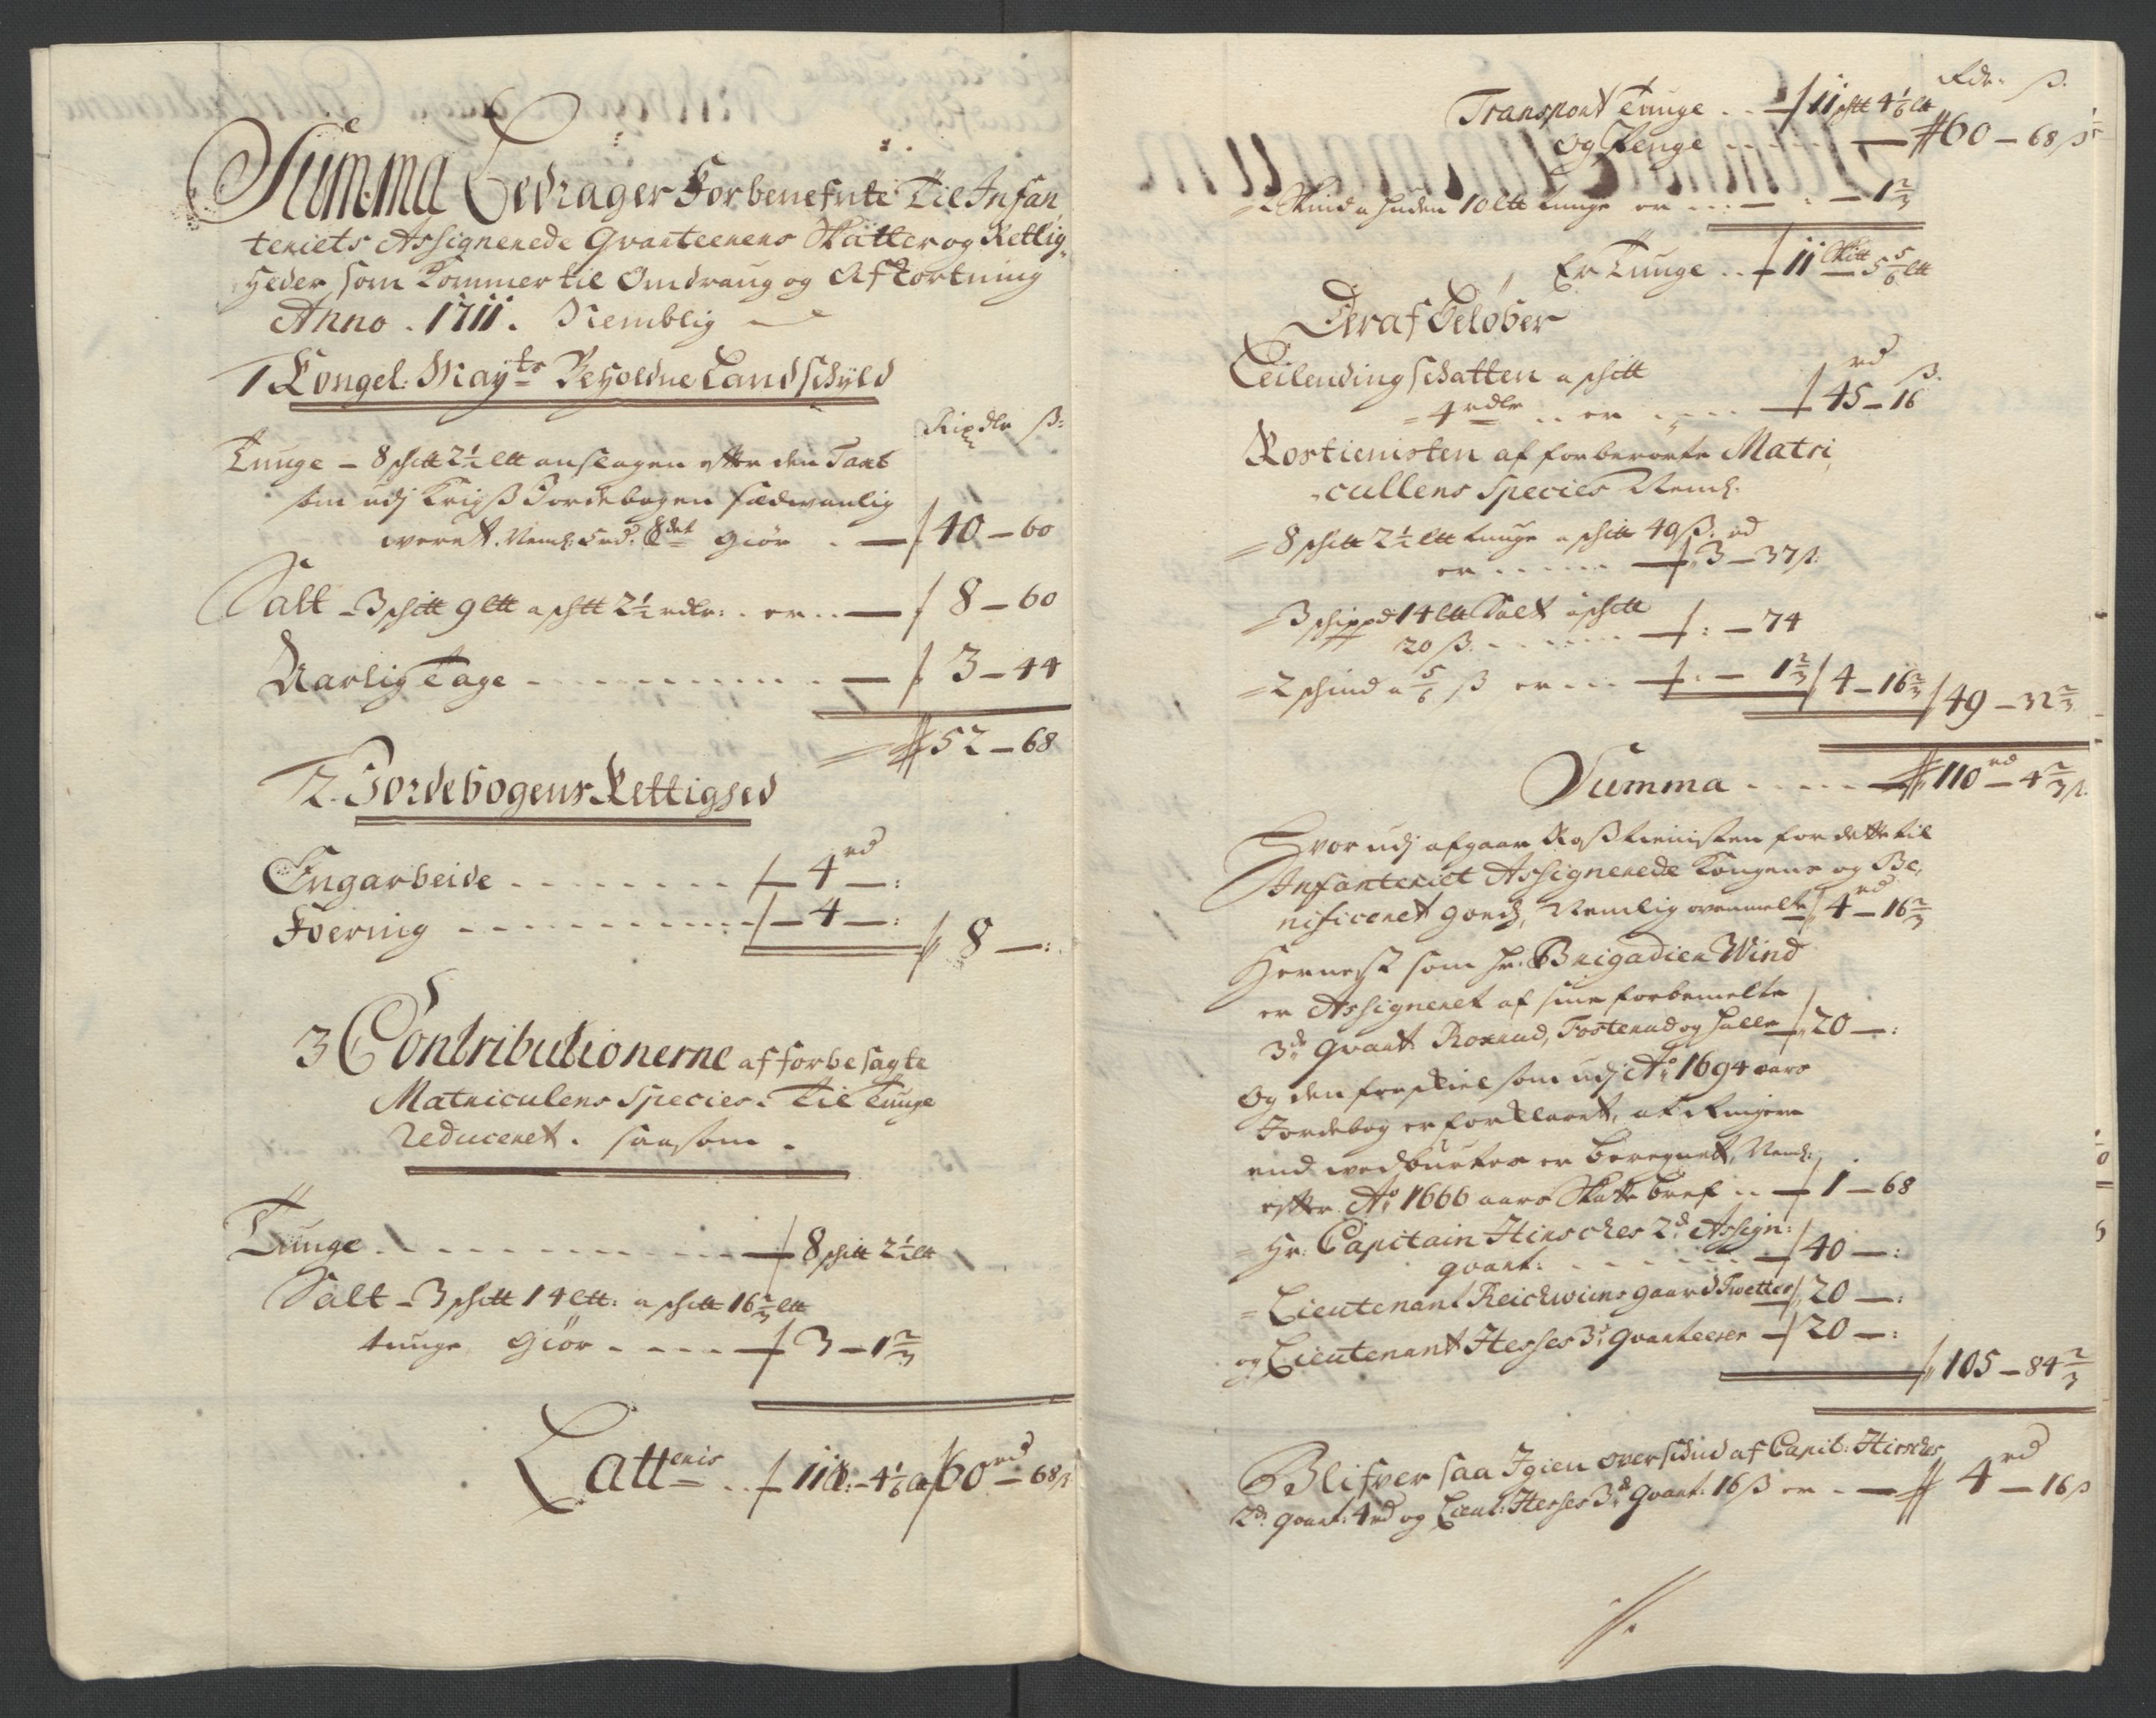 Summa Bedrager Forbenefnte Til Infan
teriets Assignerede Qvarteerers Skatter og Rettig
heder som Kommer til Omdraug og Afkortning
Anno . 1711. Nemblig
1 Kongel: Mayts Beholdne Landschyld
Rixdlr ß:
Tunge - 8 sch℔ 2½ l℔ anslagen efter den Taxt
som udj Krigß Jordebogen sædvanlig
været. Neml: 5 rd. giör . — 40 - 60
Salt - 3 sch℔ 9 l℔ a sch℔ 2½ rdlr: . er . . — 8 - 60
Aarlig Tage - - - — 3 - 44
52 - 68
2. Jordebogens Rettighed
Engarbeide - - - 4 rd — :
Foering - - - 4 — : 8 — :
3 Contributionerne af forbesagte
Matriculens Species. Til Tunge
reduceret . saasom .
Tunge . - - - 8 sch℔ 2½ l℔
Salt - 3 sch℔ 14 l℔: a sch℔ 16⅔ l℔
tunge giör - - - - 3 - 1⅔
Latteris . . 11 - 4⅙ 60 rd - 68 ß
Rdr ß.
Transport Tunge . . — 11 sch℔ 4⅙ l℔
og Penge - - - — 60 - 68 ß
= 2 Skind a huden 10 l℔ tunge er - - - — . - 1⅔
Er Tunge . . 11 Sk℔ 5⅚ l℔
Deraf Beløber
Leilending schatten a sch℔
= 4 rdlr . . er - - - — 45 rd - 16 ß.
Rostienisten af forberørte Matri
cullens Species Neml:
= 8 sch℔ 2½ l℔ tunge a sch℔ 40 ß. rd
er - - - — 3 - 37 ß:
= 3 schippd 14 l℔ Salt a sch℔
20 ß. - - - — : - 74
= 2 schind a ⅚ ß er - - - — : - 1⅔ 4 - 16⅔ 49 - 32⅔
Summa - - - - 110 rd - 4⅔ ß.
Hvor udj afgaar Roßtienisten for dette til
Infanteriet Assignerede Kongens og Be,
nificeret goedz, Nemlig ovenmelte 4 rd - 16⅔
Hernest som hr. Brigadier Wind
er Assigneret af sine forbemelte
3de Qvart: Roxrud, Tosterud og Halle — 20 — :
Og den forskiel som udj Ao 1694 aars
Jordebog er forklaret, at Ringere
end wedburtes er beregnet, Neml:
efter Ao 1666 aars Skatte bref . . — 1 - 68
= Hr: Capitain Hirsches 2d Assign:
qvart: - - - — 40 — :
= Lieutenant Reichwiens gaard Twetter 20 — :
og Lieutenant Hesses 3d Qvarteerer — 20 — :
105 - 84⅔
Blifver saa Igien oversckud af Capit: Hirsches
2d qvart: 4 rd og Lieut: Hesses 3d Qvart: 16 ß er . — 4 rd - 16 ß